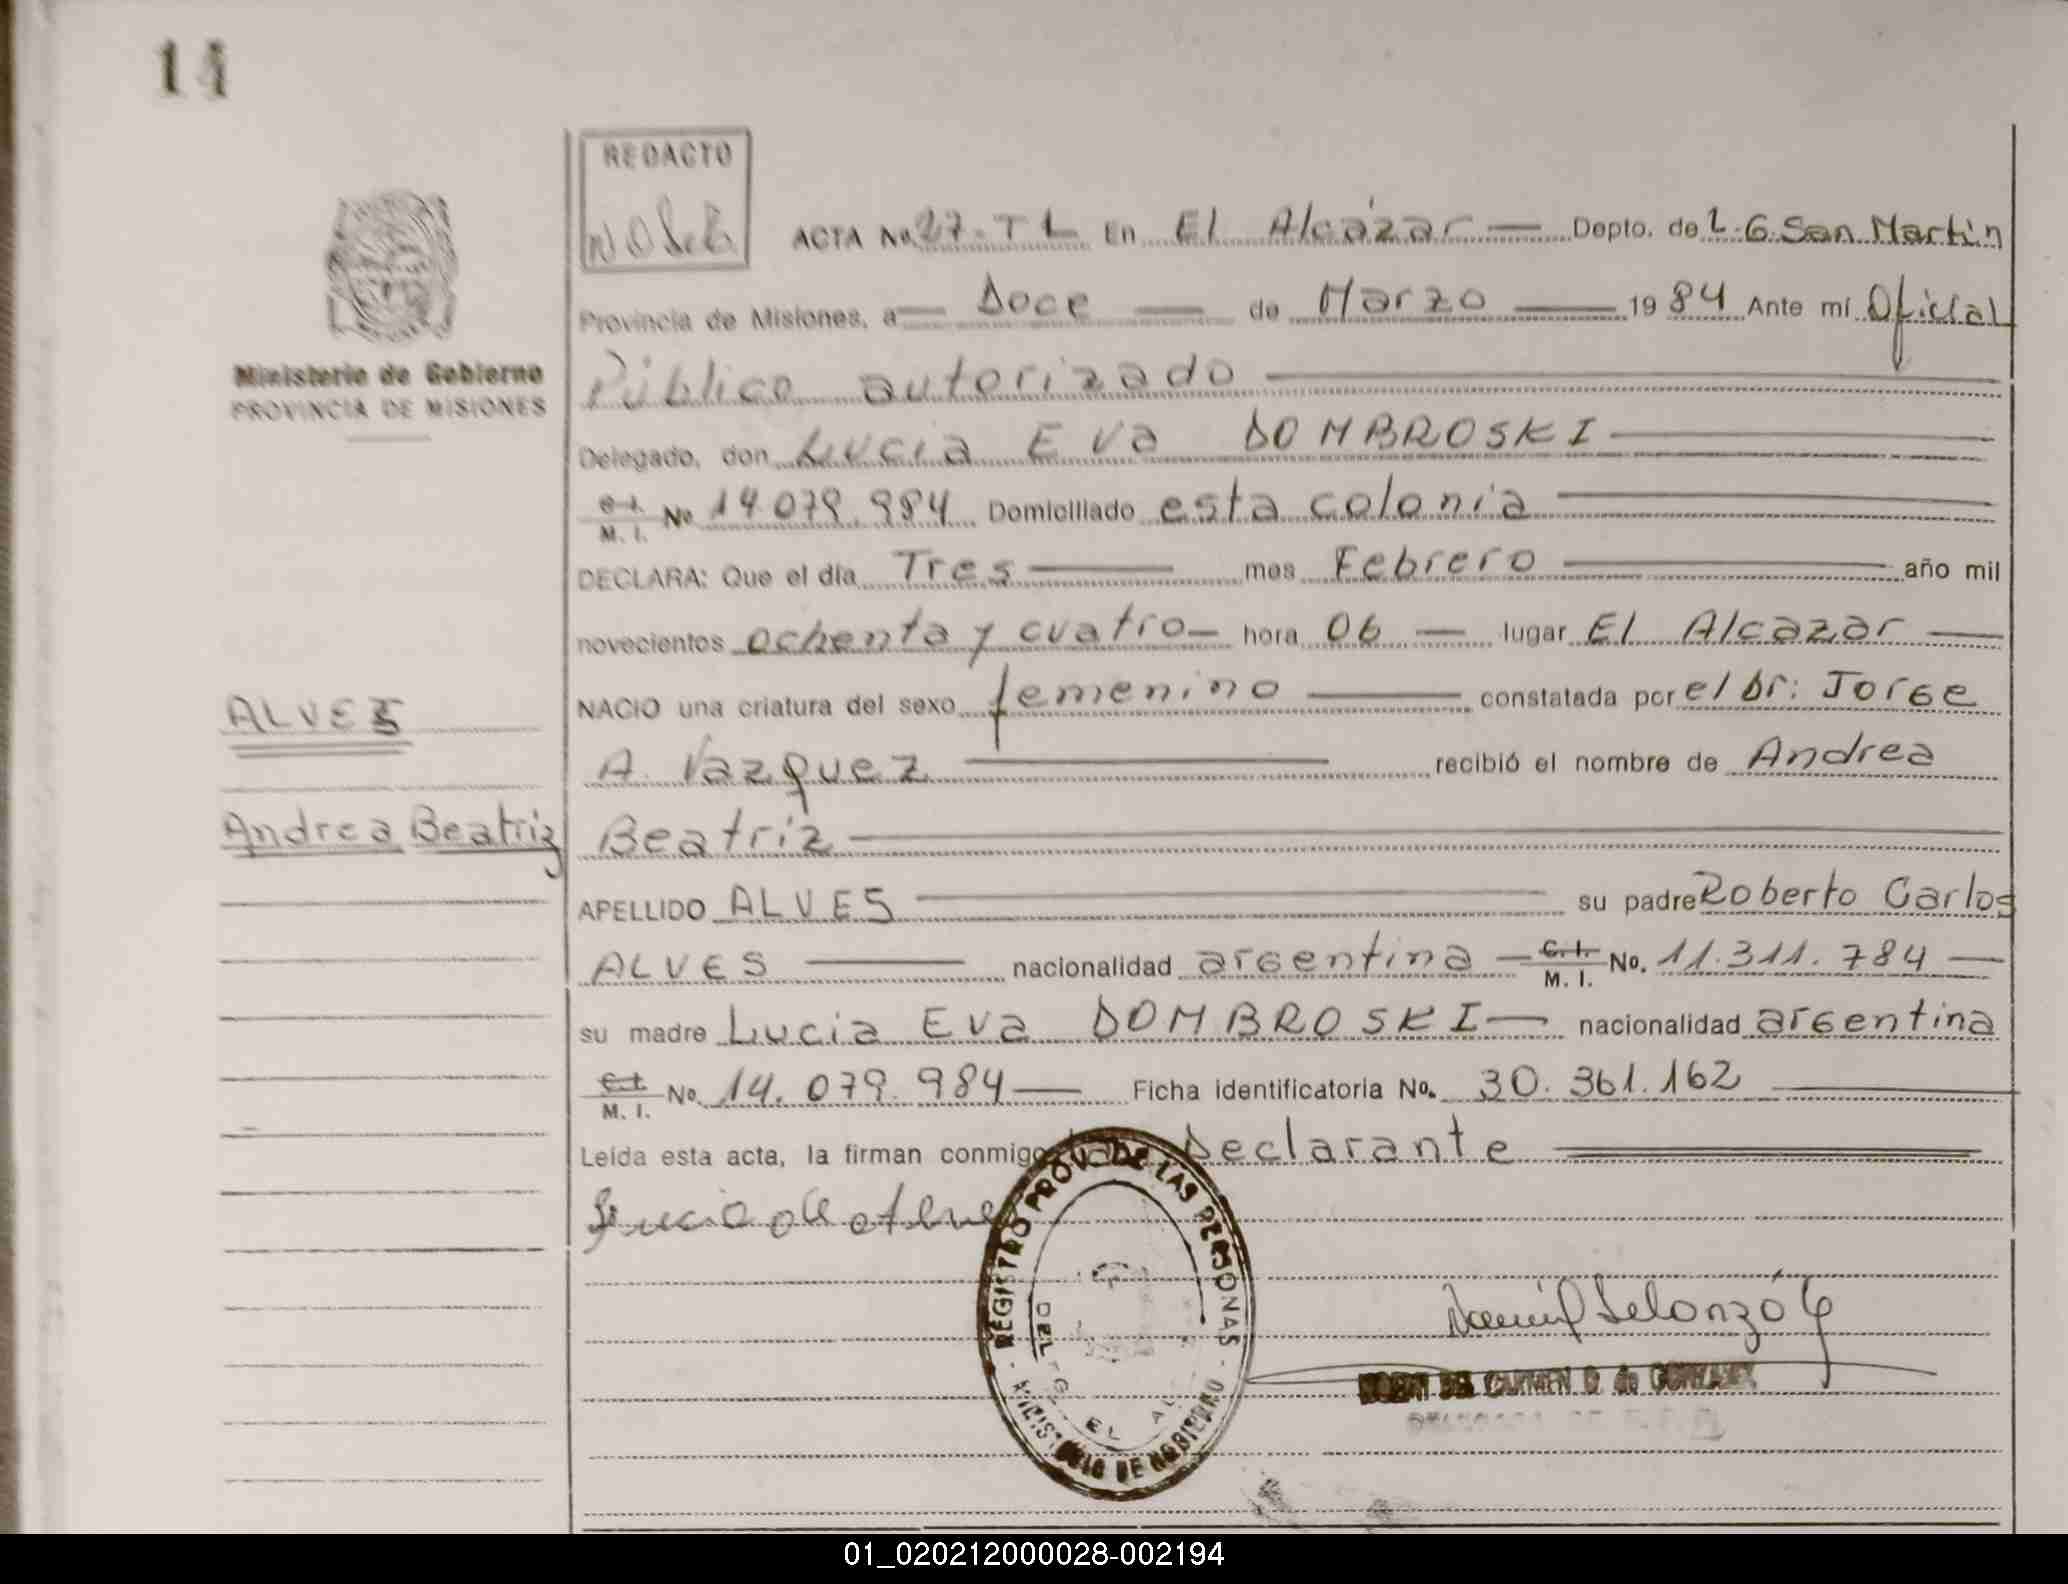 14
REDACTO
ACTA No 27-T1 En El Alcázar Depto. de L. G. San Martín
Provincia de Misiones, a Doce de Marzo 1984 Ante mí Oficial
Público autorizado
Ministerio de Gobierno
PROVINCIA DE MISIONES
Delegado, don Lucia Eva DOMBROSKI
C. I. M. I. No 14.079.984 Domiciliado esta colonia
DECLARA: Que el día Tres mes Febrero año mil
novecientos ochenta y cuatro hora 06 lugar El Alcazar
NACIO una criatura del sexo femenino constatada por el Dr: Jorge
ALVES
A. Vazquez recibió el nombre de Andrea
Andrea Beatriz
Beatriz
APELLIDO ALVES su padre Roberto Carlos
ALVES nacionalidad argentina C. I. M. I. No. 11.311.784
su madre Lucia Eva DOMBROSKI nacionalidad argentina
C. I. M. I. No. 14.079.984 Ficha identificatoria No. 30.361.162
Leída esta acta, la firman conmigo Declarante
REGISTRO PROV. DE LAS PERSONAS
MINISTERIO DE GOBIERNO
DELEG. EL AL
DEL CARMEN de
01_020212000028-002194